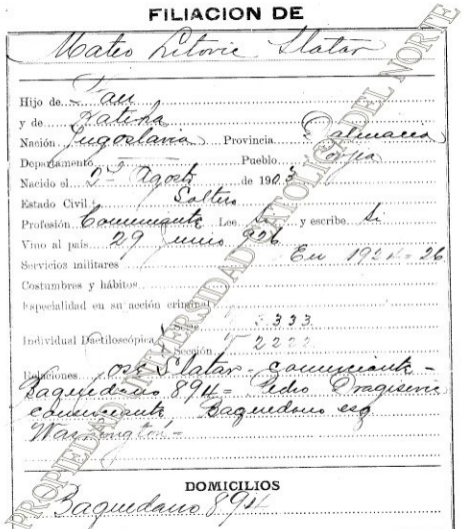 FILIACION DE
Mateo Litovic Slatar
Hijo de
y de Katicha
Nación Yugoslavia Provincia Dalmacia
Departamento Pueblo
Nacido el 2 Agosto de 1903
Estado Civil Soltero
Profesión Comerciante Lee si y escribe. Si
Vino al país 29 junio 926
Servicios militares En 1924-26
Costumbres y hábitos
Especialidad en su acción criminal
Serie V 3333
Individual Dactiloscópica
Sección V 2222
Relaciones José Slatar - comerciante -
Baquedano 894 = Pedro Dragisevic
comerciante Baquedano esq
Washington =
DOMICILIOS
Baquedano 894
PROPIEDAD UNIVERSIDAD CATOLICA DEL NORTE